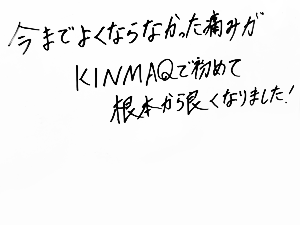 今までよくならなかった痛みが
KINMAQで初めて
根本から良くなりました!